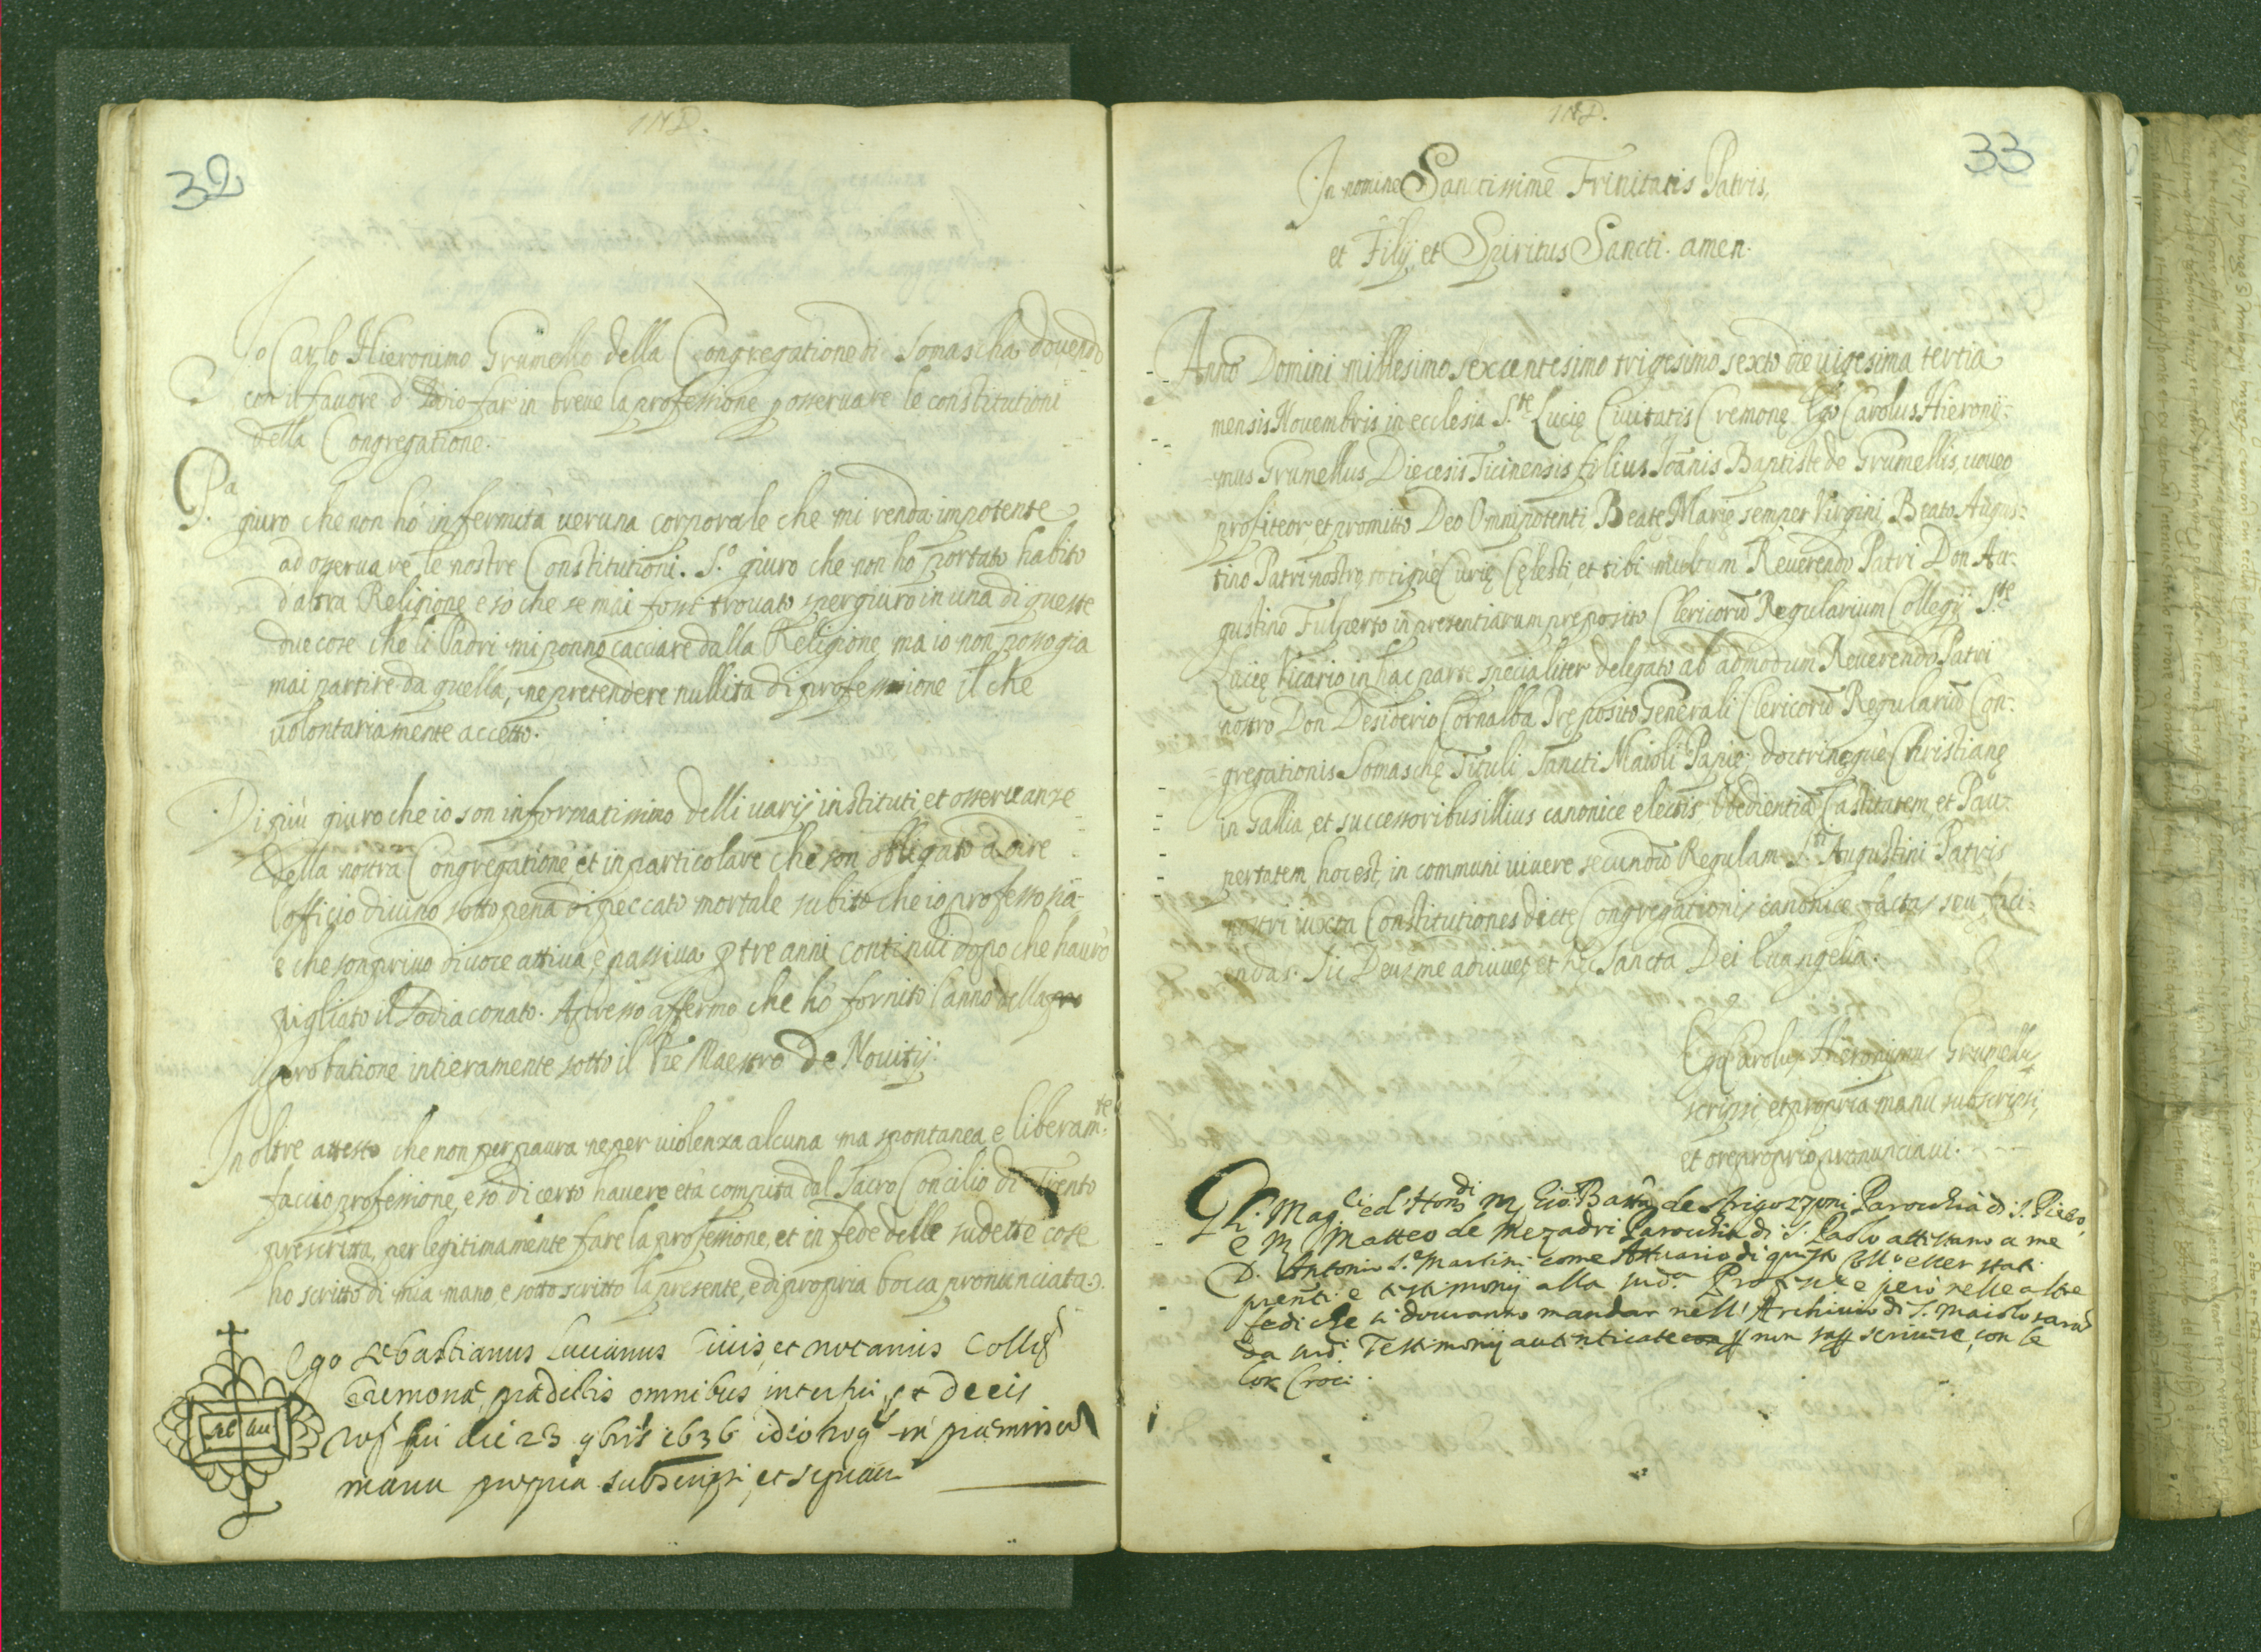 IND.
32
Io Carlo Hieronimo Grumello della Congregatione di Somascha dovendo
con il favore d' Iddio far in breve la professione p osservare le constitutioni
della Congregatione.
Pa giuro che non hò infermità veruna corporale che mi renda impotente
ad osservare le nostre Constitutioni. S.o giuro che non ho portato habito
d'altra Religione e sò che se mai fossi trovato spergiuro in una di queste
due cose che li Padri mi ponno cacciare dalla Religione ma io non posso gia
mai partire da quella, ne pretendere nullità di professione il che
volontariamente accetto.
Di più giuro che io son informatissimo delli varij instituti, et osservanze
della nostra Congregatione et in particolare che son obligato a dire
l'officio divino sotto pena di peccato mortale subito che io professo sia
e che son privo di voce attiva, e passiva p tre anni continui dopo che havrò
pigliato il Sodiaconato. Adesso affermo che hò fornito l'anno della pro
probatione intieramente sotto il Pre Maestro De Novitij.
In oltre attesto che non per paura ne per violenza alcuna ma spontanea e liberam.te
faccio professione, e sò di certo havere età compita dal Sacro Concilio di Trento
prescritta, per legitimamente fare la professione, et in fede delle sudette cose
ho scritto di mia mano, e sotto scritto la presente, e di propria bocca pronunciata.
Ego Sebastianus Lucianus Civis, et notarius Colleg
Cremonę prędictis omnibus interfui, et de eis
rog fui die 23 9bris 1636 ideo rog in pręmissor
manu propria subscripsi, et signavi
IND.
33
In nomine Sanctissime Trinitatis Patris,
et Filij, et Spiritus Sancti. amen.
Anno Domini millesimo sexcentesimo trigesimo sexto die vigesima tertia
mensis Novembris in ecclesia S.te Lucię Civitatis Cremonę Ego Carolus Hierony-
mus Grumellus Dięcesis Ticinensis filius Ioanis Baptiste de Grumellis, voveo
profiteor, et promitto Deo Omnipotenti, Beatę Marię semper Virgini, Beato Augus-
tino Patri nostro totique Curię Cęlesti, et tibi multum Reverendo Patri Don Au-
gustino Fulperto in presentiarum preposito Clericorū Regularium Collegij S.te
Lucię Vicario in hac parte specialiter delegato ab admodum Reverendo Patri
nostro Don Desiderio Cornalba Pręposito Generali Clericorū Regulariū Con-
gregationis Somaschę Tituli Sancti Maioli Papię, doctrinęque Christianę
in Gallia, et successoribus illius canonice electis, Obedientiā Castitatem, et Pau-
pertatem hoc est, in communi vivere secundū Regulam S.ti Augustini Patris
nostri iuxta Constitutiones dicte Congregationis canonice factas, seu faci-
endas. Sic Deus me adiuvet, et hęc Sancta Dei Evangelia.
Ego Carolus Hieronymus Grumellus
scripsi, et propria manu subscripsi,
et ore proprio pronunciavi.
Gli Mag.ci ed Hon.di M. Gio: Batta de Arigozzoni Parochia di S. Pietro,
e M. Matteo de Mezadri Parochia di S. Paolo attistano a me
D. Antonio S. Martini come Attuario di questo Coll.o esser stati
prenti e testimonij alla sud.a Profne e però nelle altre
fedi che si dovranno mandar nell' Archivio di S. Maiolo sarà
da sud.i Testimonij autenticate con p non sap scrivere, con le
lor Croci.